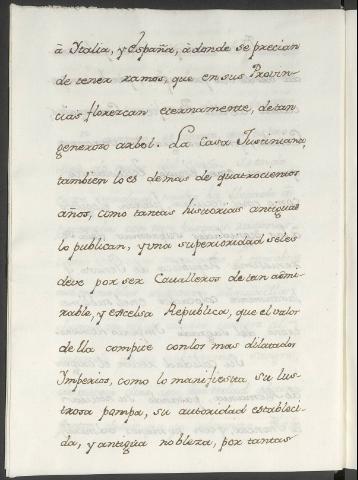 à Italia, y España, à donde se precian
de tener ramos, que en sus Provin-
cias florezcan eternamente, de tan
generoso arbol. La casa Iustiniana,
tambien lo es de mas de quatrocientos
años, como tantas historias antiguas
lo publican, y una superioridad seles
deve por ser Cavalleros de tan admi-
rable, y excelsa Republica, que el valor
della compite conlos mas dilatados
Imperios, como lo manifiesta su lus-
trosa pompa, su autoridad estableci-
da, y antigua nobleza, por tantas